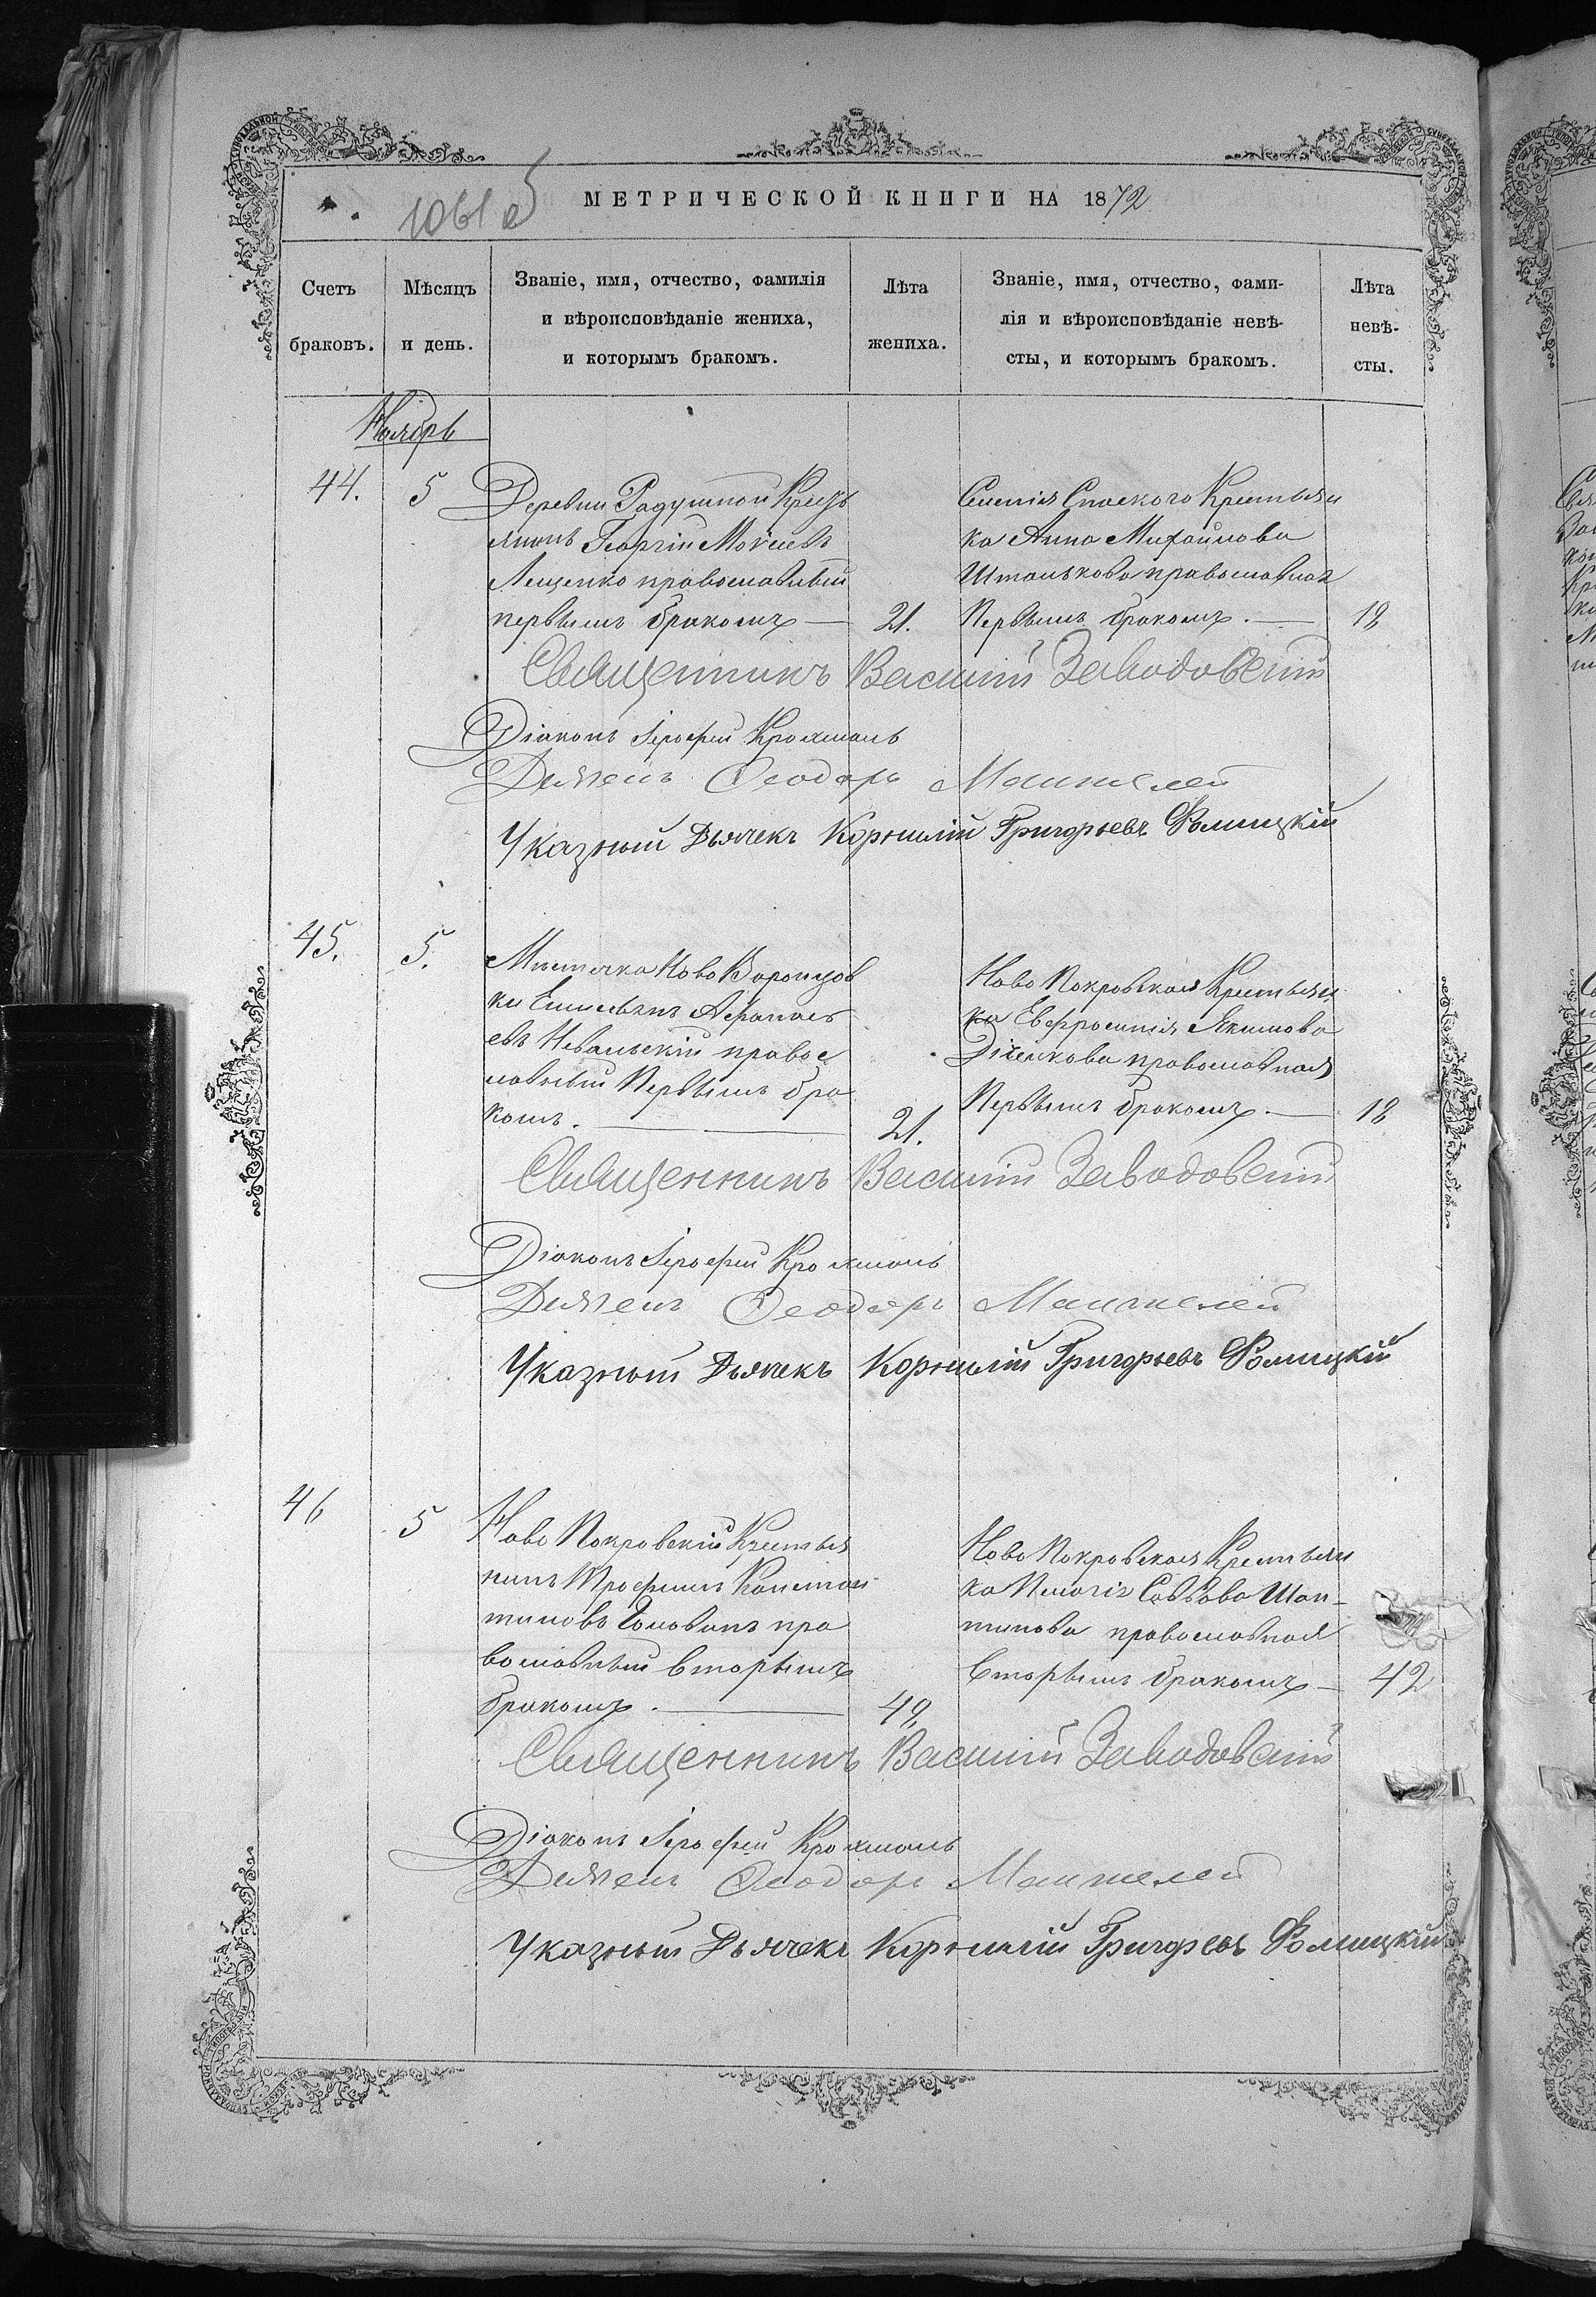 1061 об
МЕТРИЧЕСКОЙ КНИГИ НА 1872
Счетъ браковъ.
Мѣсяцъ и день.
Званіе, имя, отчество, фамилія
и вѣроисповѣданіе жениха,
и которымъ бракомъ.
Лѣта жениха.
Званіе, имя, отчество, фами-
лія и вѣроисповѣданіе невѣ-
сты, и которымъ бракомъ.
Лѣта невѣ-
сты.
Ноябрь
44. 5
Деревни Радушной Кресть
янинъ Георгій Моѵсеевъ
Лещенко православный
первымъ бракомъ — 21.
Селенія Спаского Крестьян
ка Анна Михайлова
Штанькова православная
Первымъ бракомъ. — 18
Священникъ Василій Заводовскій
Діаконъ Іерофей Крохмаль
Дьячекъ Ѳеодоръ Манжелей
Указный Дьячекъ Корнилій Григорьевъ Фомицкій
45. 5.
Мѣстечка Ново Воронцов
ки Емельянъ Афанась
евъ Невальскій правос
лавный Первымъ бра
комъ. — 21.
Ново Покровская Крестьян
ка Евфросинія Якимова
православная
Первымъ бракомъ. — 18
Священникъ Василій Заводовскій
Діаконъ Іерофей Крохмаль
Дьячекъ Ѳеодоръ Манжелей
Указный Дьячекъ Корнилій Григорьевъ Фомицкій
46 5
Ново Покровскій Крестья
нинъ Трофимъ Констан
тиновъ Головань пра
вославный вторымъ
бракомъ. — 49,
Ново Покровская Крестьян
ка Пелагія Саввова Шап-
тинова православная
Вторымъ бракомъ — 42
Священникъ Василій Заводовскій
Діаконъ Іерофей Крохмаль
Дьячекъ Ѳеодоръ Манжелей
Указный Дьячекъ Корнилій Григорьевъ Фомицкій